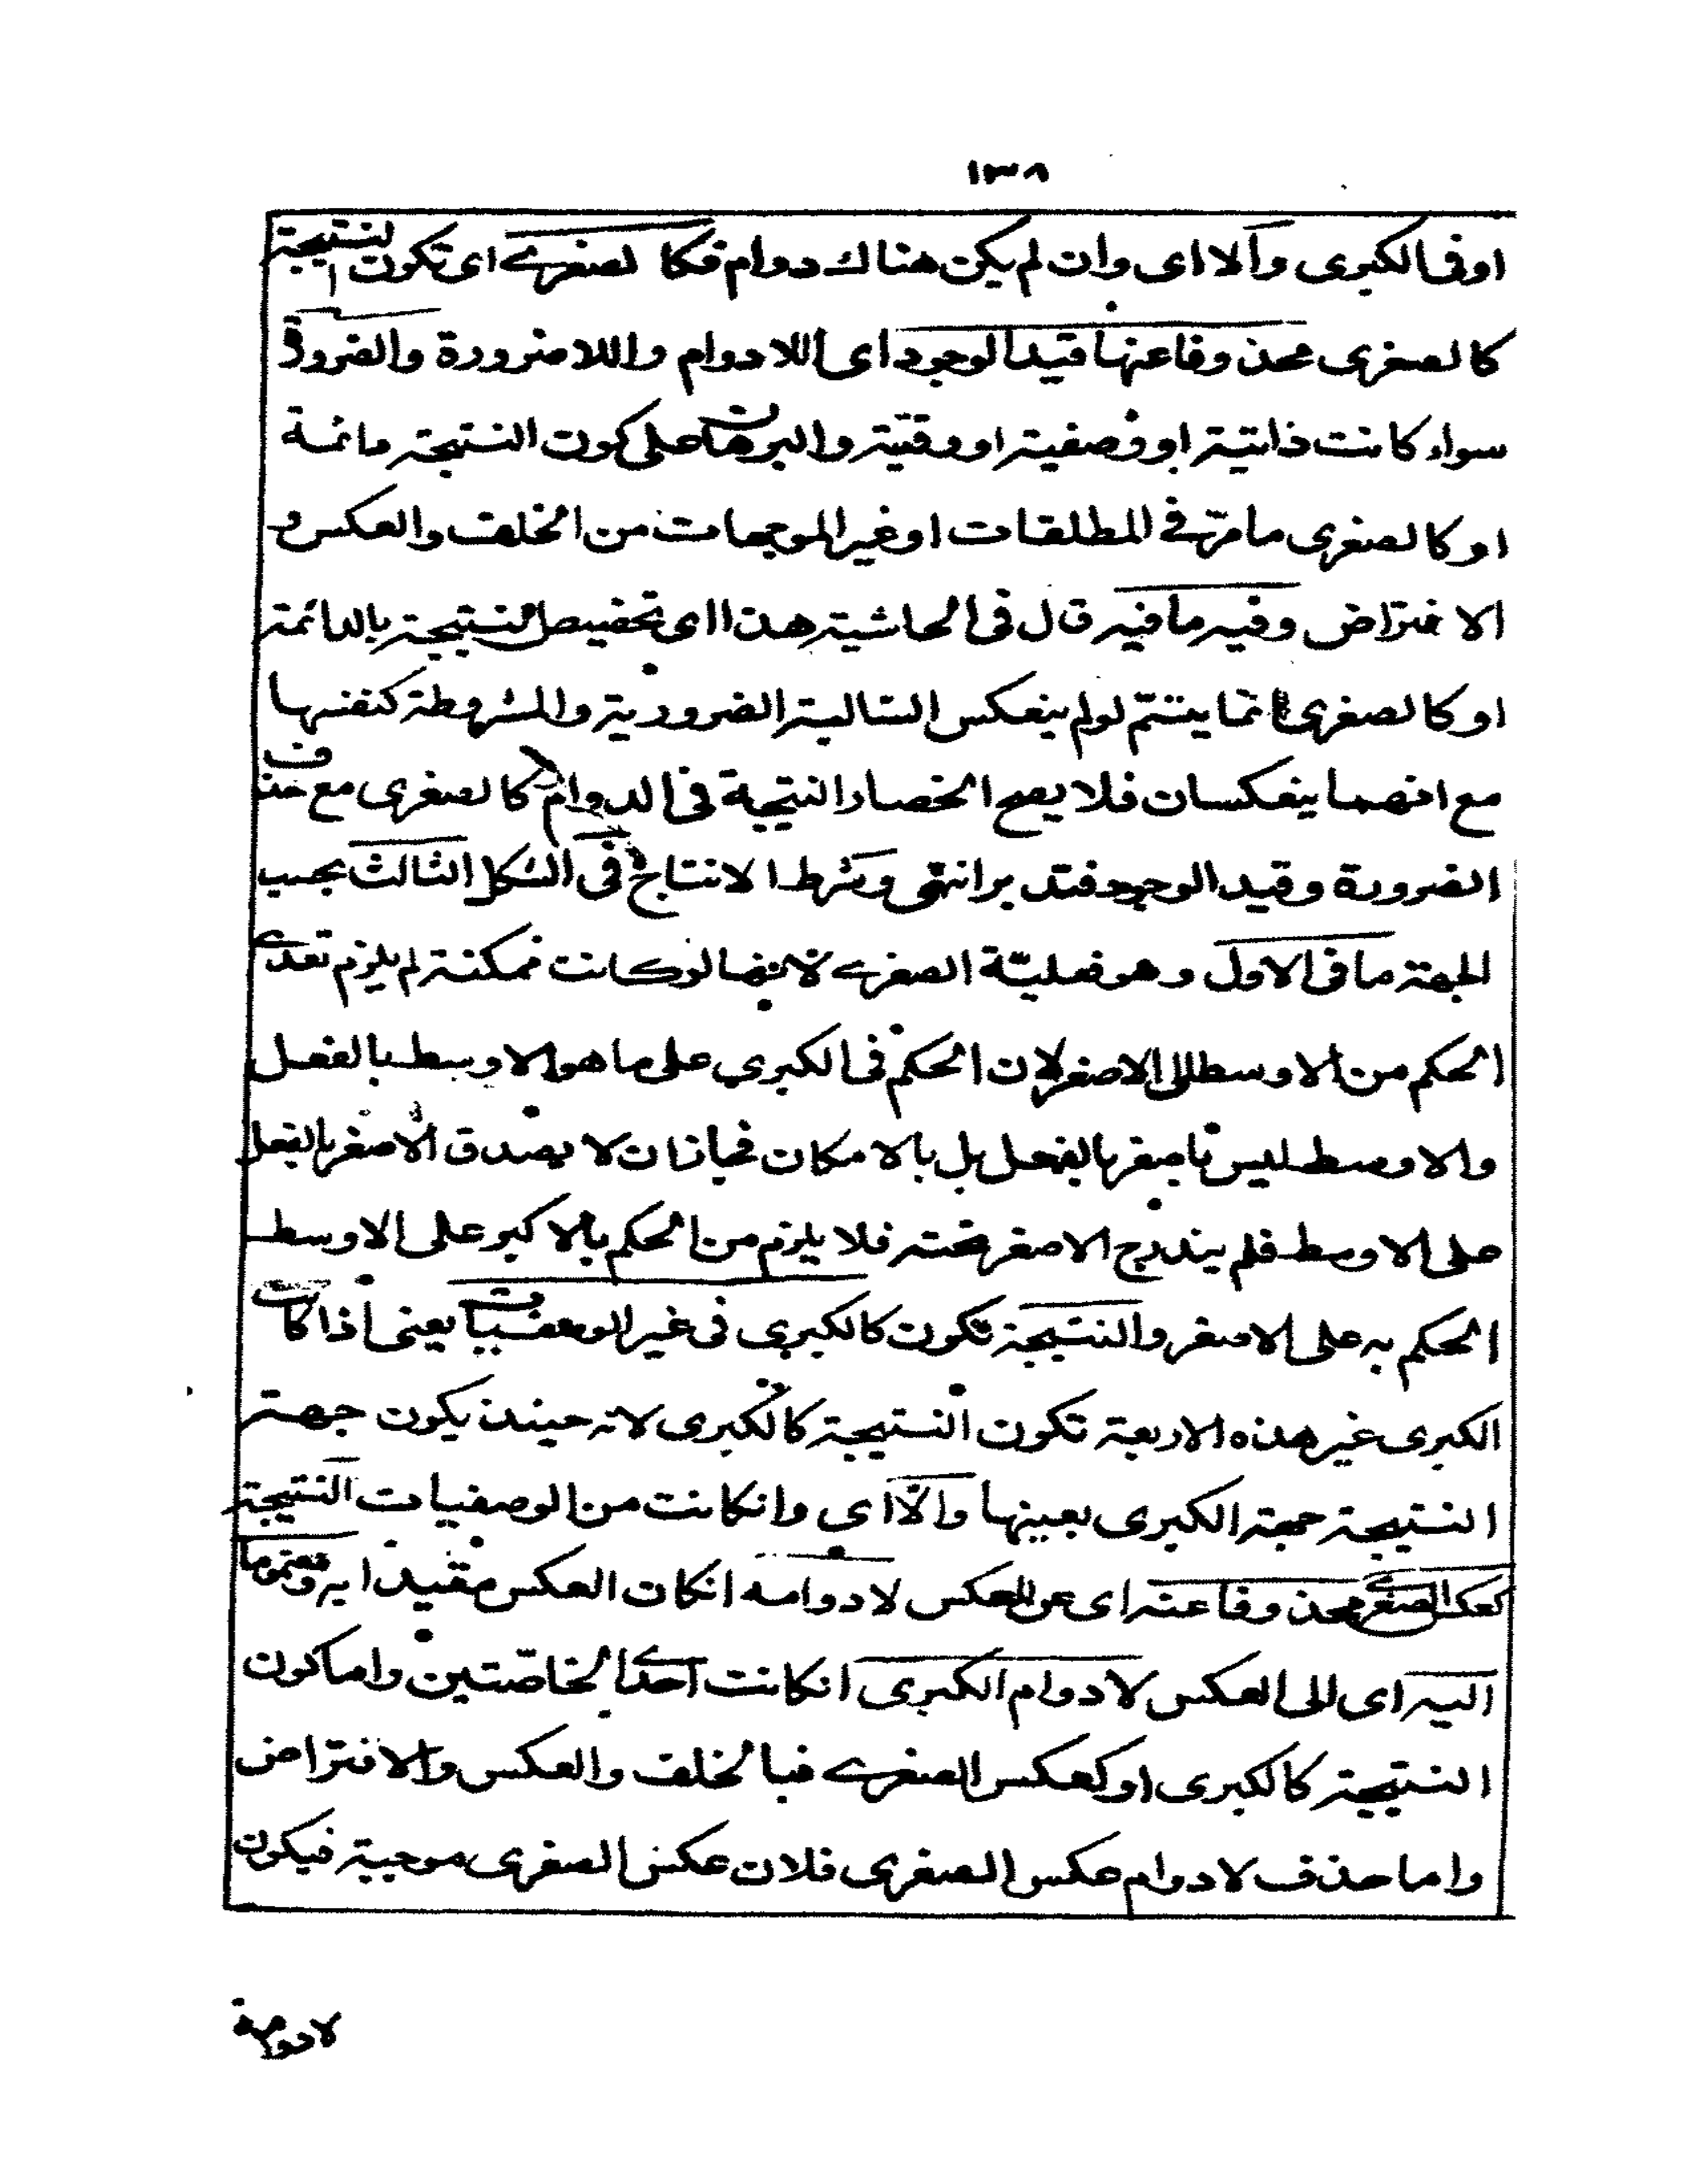 ١٣٨
او فى الكبرى والا اى وان لم يكن هناك دوام فكالصغرے اى تكون النتيجة
كالصغرى محذوفا عنها قيد الوجود اى اللادوام واللاضرورة والضرورة
سواء كانت ذاتية او وصفية او وقتية والبرهان على كون النتيجة دائمة
او كالصغرى ما مرّ فے المطلقات او غير الموجهات من الخلف والعكس و
الافتراض وفيه ما فيه قال فى الحاشية هذا اى تخصيص النتيجة بالدائمة
او كالصغرى انما يتم لو لم ينعكس السالبة الضرورية والمشروطة كنفسها
مع انهما ينعكسان فلا يصح انحصار النتيجة فى الدوام كالصغرى مع حذف
الضرورة وقيد الوجود فتدبر انتهى وشرط الانتاج فى الشكل الثالث بحسب
الجهة ما فى الاول وهو فعليّة الصغرے لانها لو كانت ممكنة لم يلزم تعدے
الحكم من الاوسط الى الاصغر لان الحكم فى الكبرى على ما هو الاوسط بالفعل
والاوسط ليس باصغر بالفعل بل بالامكان فجاز ان لا يصدق الاصغر بالفعل
على الاوسط فلم يندرج الاصغر تحته فلا يلزم من الحكم بالاكبر على الاوسط
الحكم به على الاصغر والنتيجة تكون كالكبرى فى غير الوصفيات يعنى اذا كانت
الكبرى غير هذه الاربعة تكون النتيجة كالكبرى لانه حينئذ يكون جهة
النتيجة جهة الكبرى بعينها والّا اى وانكانت من الوصفيات النتيجة
كعكس الصغرے محذوفا عنه اى عن العكس لادوامه انكان العكس مقيدا به ومضموما
اليه اى الى العكس لادوام الكبرى انكانت احدے الخاصّتين واما كون
النتيجة كالكبرى او كعكس الصغرے فبالخلف والعكس والافتراض
واما حذف لادوام عكس الصغرى فلان عكس الصغرى موجبة فيكون
لادوامه